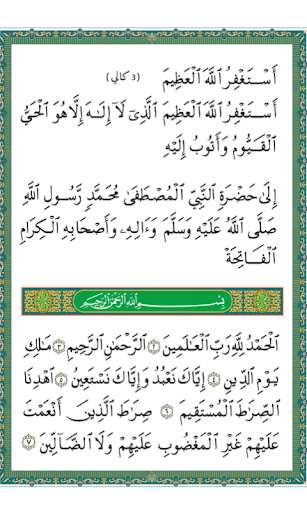 أَسْتَغْفِرُ اللَّهَ الْعَظِيمَ (3 كالي)
أَسْتَغْفِرُ اللَّهَ الْعَظِيمَ الَّذِيٓ لَآ إِلَـٰهَ إِلَّا هُوَ الْحَيُّ
الْقَيُّومُ وَأَتُوبُ إِلَيْهِ
إِلَىٰ حَضْرَةِ النَّبِيِّ الْمُصْطَفَىٰ مُحَمَّدٍ رَّسُولِ اللَّهِ
صَلَّى اللَّهُ عَلَيْهِ وَسَلَّمَ وَءَالِهِۦ وَأَصْحَابِهِ الْكِرَامِ
الْفَاتِحَةْ
بِسْمِ اللَّهِ الرَّحْمَٰنِ الرَّحِيمِ
الْحَمْدُ لِلَّهِ رَبِّ الْعَـٰلَمِينَ ۝٢ الرَّحْمَـٰنِ الرَّحِيمِ ۝٣ مَـٰلِكِ
يَوْمِ الدِّينِ ۝٤ إِيَّاكَ نَعْبُدُ وَإِيَّاكَ نَسْتَعِينُ ۝٥ اهْدِنَا
الصِّرَٰطَ الْمُسْتَقِيمَ ۝٦ صِرَٰطَ الَّذِينَ أَنْعَمْتَ
عَلَيْهِمْ غَيْرِ الْمَغْضُوبِ عَلَيْهِمْ وَلَا الضَّآلِّينَ ۝٧